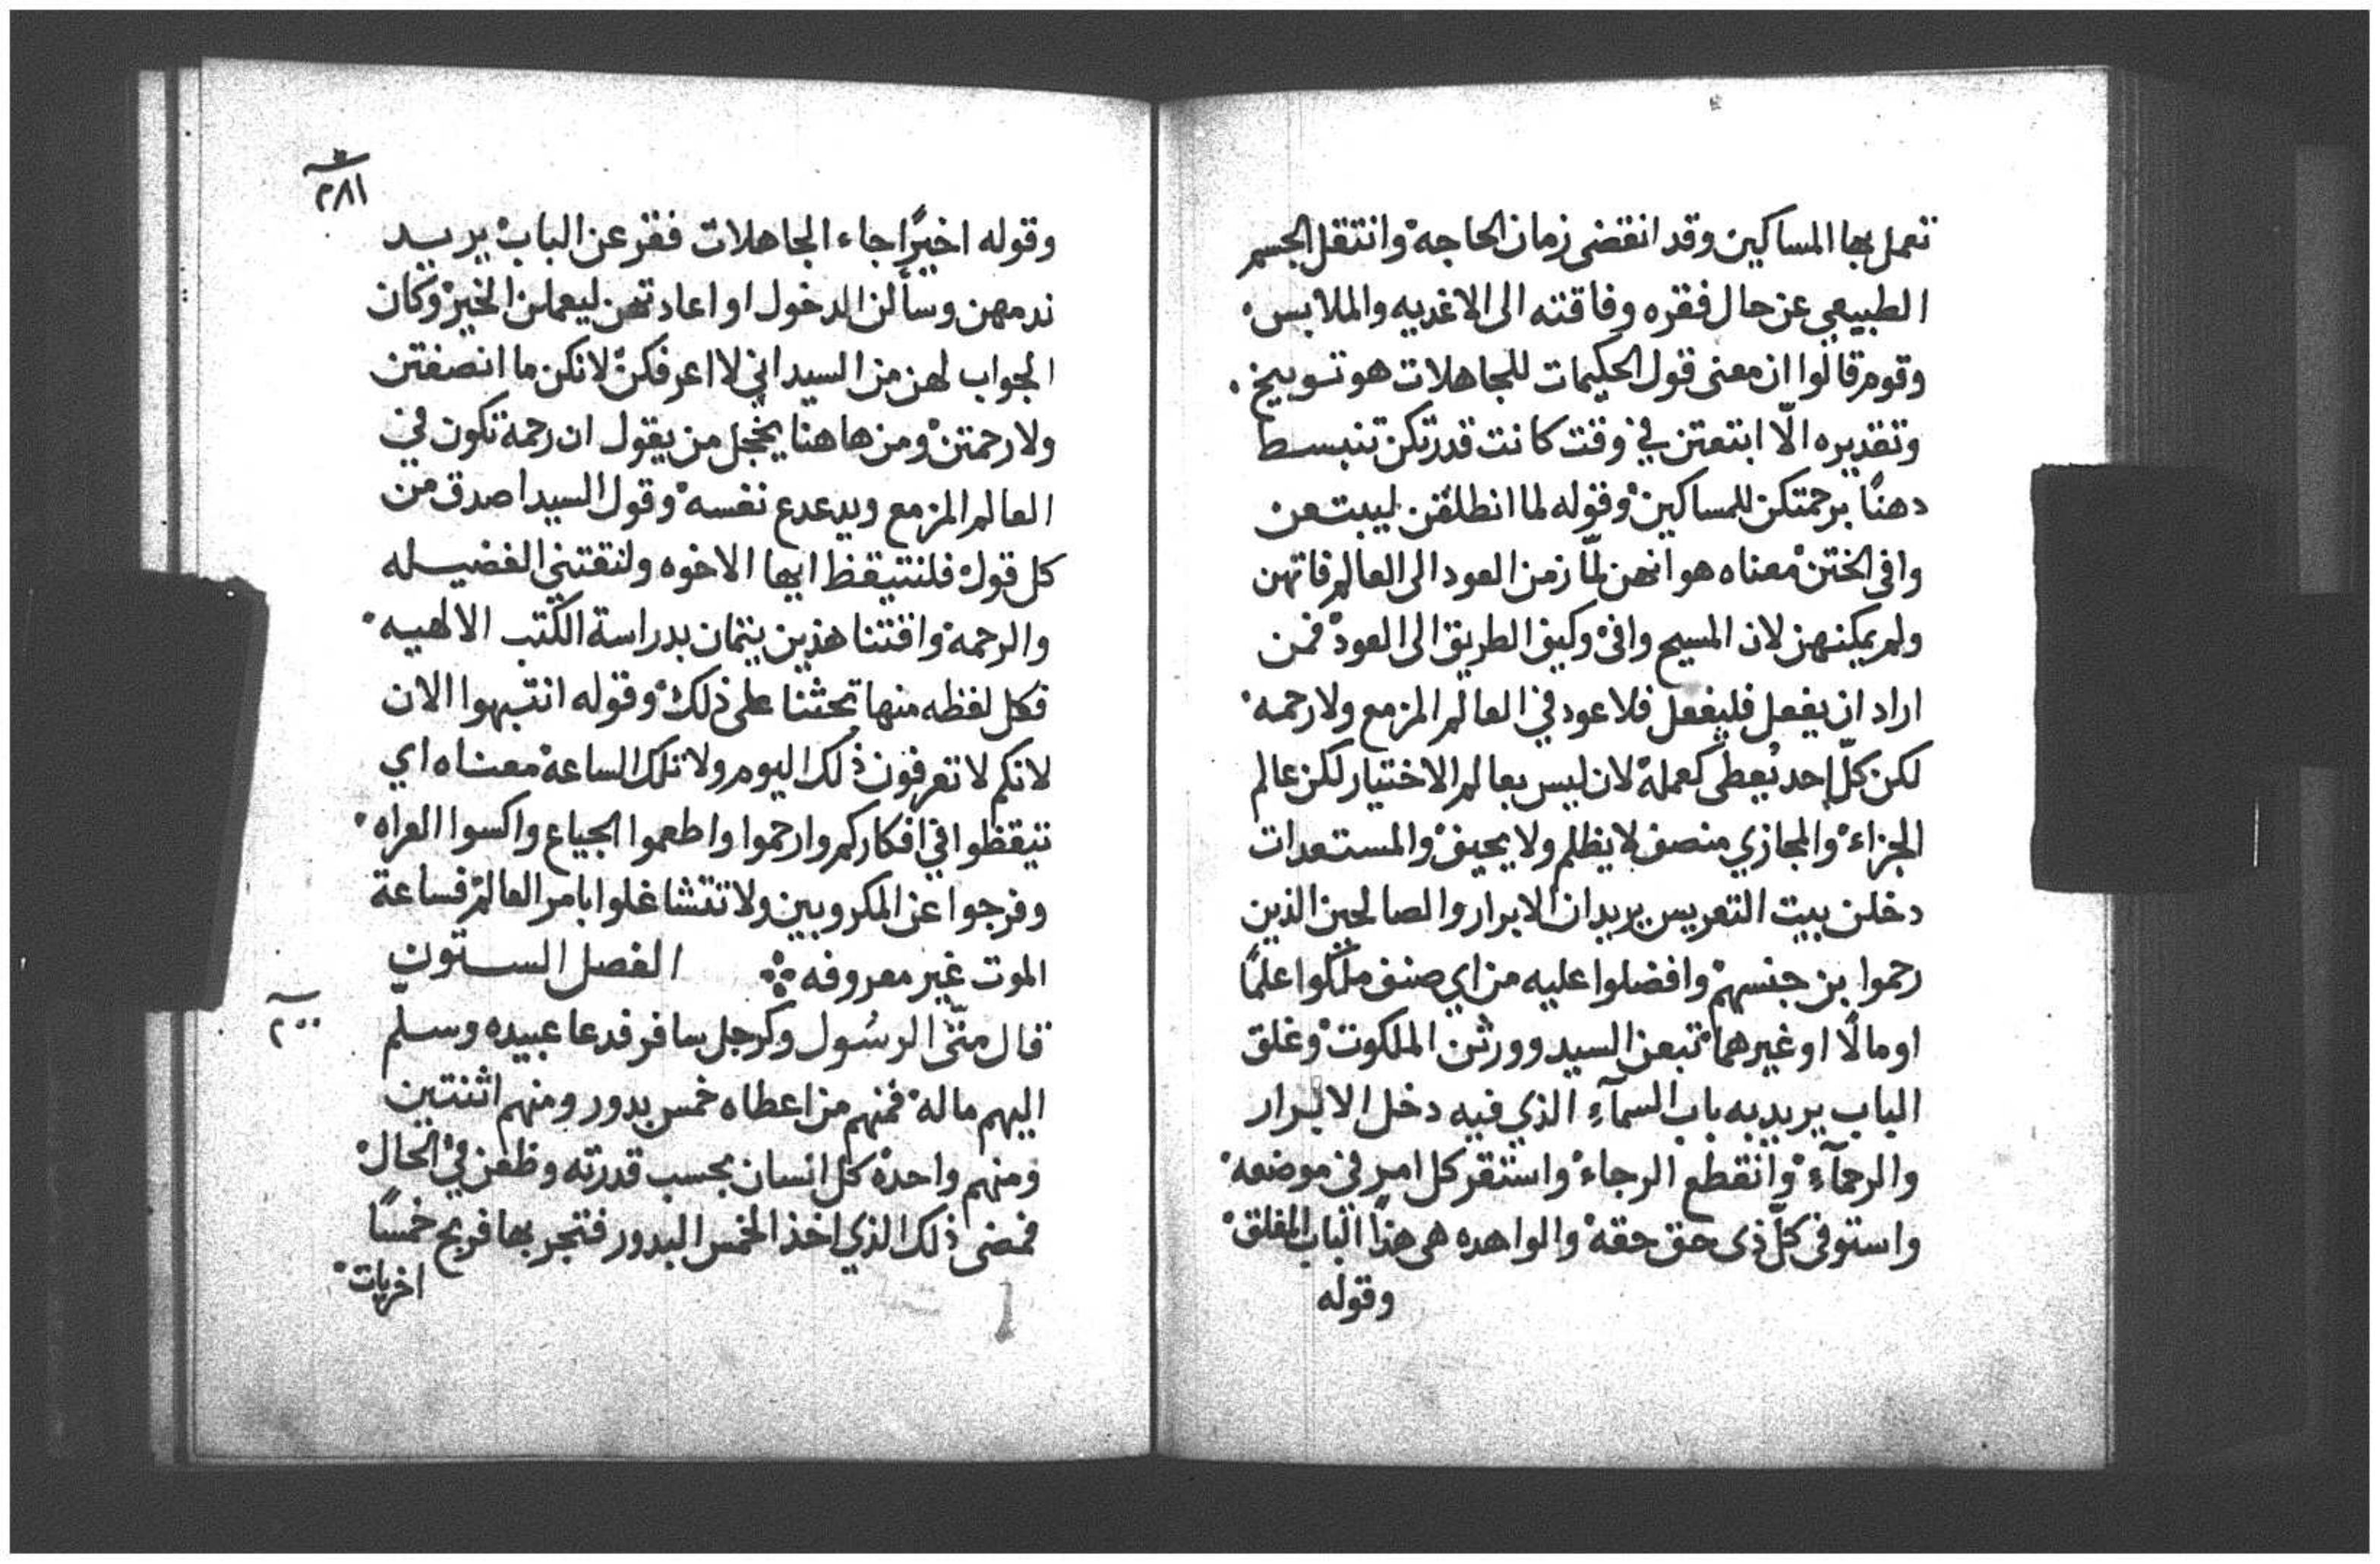 تعمل بها المساكين وقد انقضى زمان الحاجة وانتقل الجسم
الطبيعي عن حال فقره وفاقته الى الاغديه والملابس
وقوم قالوا ان معنى قول الحكيمات للجاهلات هو توبيخ
وتقديره الّا ابتعتن في وقت كانت قدرتكن تنبسط
دهنًا برحمتكن للمساكين وقوله لما انطلقن ليبتعن
وافى الختن معناه هو انهن لمّا زمن العود الى العالم فاتهن
ولم يمكنهن لان المسيح وافى وكيف الطريق الى العود فمن
اراد ان يفعل فليفعل فلا عود في العالم المزمع ولا رحمه
لكن كلّ احد يُعطى كعمله لان ليس بعالم الاختيار لكن عالم
الجزاء والمجازي منصف لا يظلم ولا يحيف والمستعدات
دخلن بيت التعريس يريد ان الابرار والصالحين الذين
رحموا بن جنسهم وافضلوا عليه من اي صنف ملكوا علمًا
او مالًا او غيرهما تبعن السيد وورثن الملكوت وغلق
الباب يريد به باب السمآءِ الذي فيه دخل الابرار
والرحمآءِ وانقطع الرجاء واستقر كل امرٍ في موضعه
واستوفى كلّ ذى حق حقه والواهده هى هذا الباب المغلق
وقوله
٢٨١
وقوله اخيرًا جاء الجاهلات فقر عن الباب يريد
ندمهن وسألن الدخول او اعادتهن ليعملن الخير وكان
الجواب لهن من السيد اني لا اعرفكن لانكن ما انصفتن
ولا رحمتن ومن هاهنا يخجل من يقول ان رحمة تكون في
العالم المزمع ويدعدع نفسه وقول السيد اصدق من
كل قول فلنتيقظ ايها الاخوه ولنقتني الفضيله
والرحمة واقتنا هذين يتمان بدراسة الكتب الالهيه
فكل لفظه منها تحثنا على ذلك وقوله انتبهوا الان
لانكم لا تعرفون ذلك اليوم ولا تلك الساعة معناه اي
تيقظوا في افكاركم وارحموا واطعموا الجياع واكسوا العراه
وفرجوا عن المكروبين ولا تتشاغلوا بامر العالم فساعة
الموت غير معروفه ۞ الفصل الستون
قال متّى الرسُول وكرجل سافر فدعا عبيده وسلّم
اليهم ماله فمنهم من اعطاه خمس بدور ومنهم اثنتين
ومنهم واحدة كل انسان بحسب قدرته وظعن في الحال
فمضى ذلك الذي اخذ الخمس البدور فتجر بها فربح خمسًا
اخريات